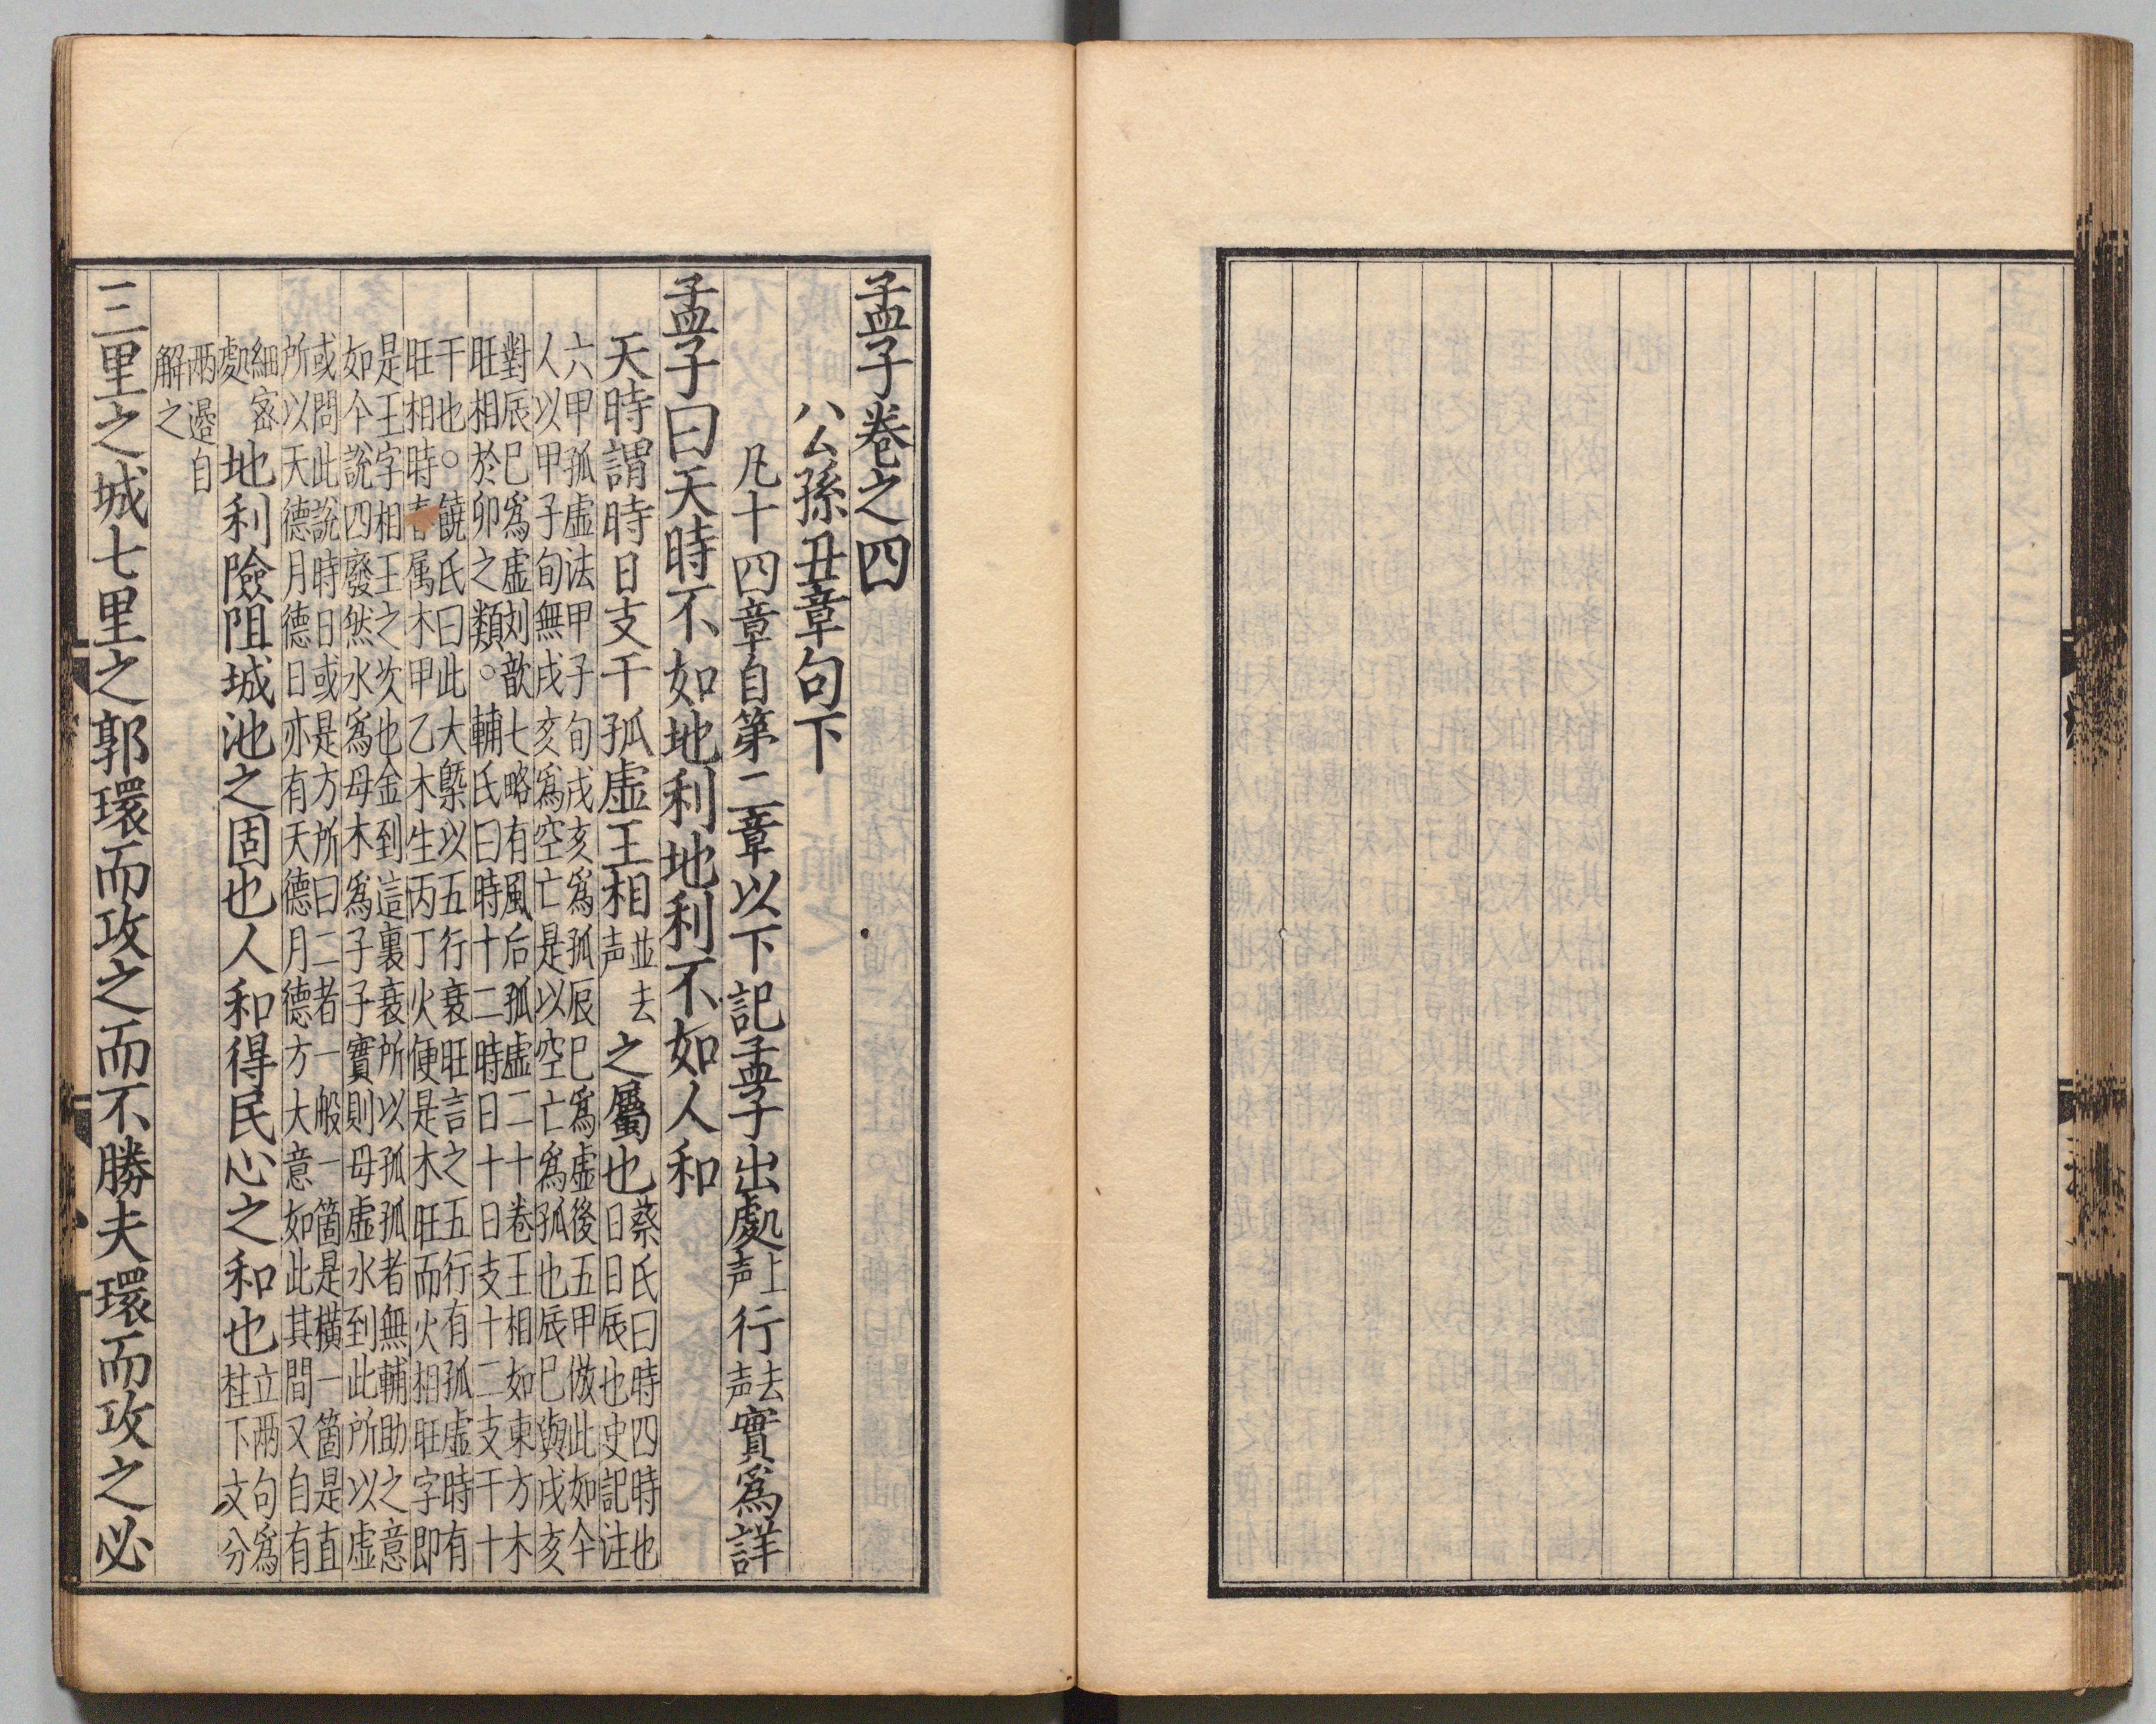 孟子卷之四
公孫丑章句下
凡十四章自第二章以下記孟子出處上声行去声實爲詳
孟子曰天時不如地利地利不如人和
天時謂時日支干孤虛王相並去声之屬也蔡氏曰時四時也日日辰也史記注
六甲孤虛法甲子旬戌亥爲孤辰巳爲虛後五甲倣此如仐
人以甲子旬無戌亥爲空亡是以空亡爲孤也辰巳與戌亥
對辰巳爲虛刘歆七略有風后孤虛二十卷王相如東方木
旺相於卯之類○輔氏曰時十二時日十日支十二支干十
干也○饒氏曰此大槩以五行衰旺言之五行有孤虛時有
旺相時春属木甲乙木生丙丁火便是木旺而火相旺字即
是王字相王之次也金到這裏衰所以孤孤者無輔助之意
如仐說四廢然水爲母木爲子子實則母虛水到此所以虛
或問此說時日或是方所曰二者一般一箇是橫一箇是直
所以天德月德日亦有天德月德方大意如此其間又自有
細宻
處地利險阻城池之固也人和得民心之和也立兩句爲
柱下文分
兩邉自
解之
三里之城七里之郭環而攻之而不勝夫環而攻之必